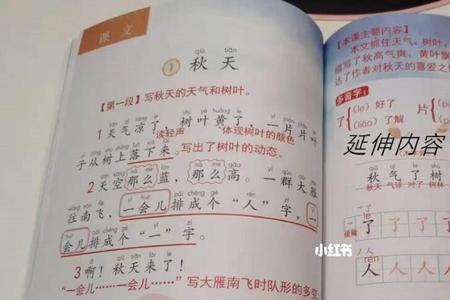 课文
qiū tiān
1 秋天
【第一段】写秋天的天气和树叶。
1 天气凉了，树叶黄了，一片片叶
读轻声 体现树叶的颜色
子从树上落下来。写出了树叶的动态。
2 天空那么蓝，那么高。一群大雁
往南飞，一会儿排成个“人”字，一
会儿排成个“一”字。
3 啊！秋天来了！
“一会儿……一会儿……”写大雁南飞时队形的多变
【本课主要内容】
本文抓住天气、树叶、
描写了秋高气爽、黄叶飘
达了作者对秋天的喜爱之
多音字：
了 (le) 好了
(liǎo) 了解
片
延伸内容
秋气了树
秋天 气球 对了 树林
le
了了了了
rén
人人人
小红书